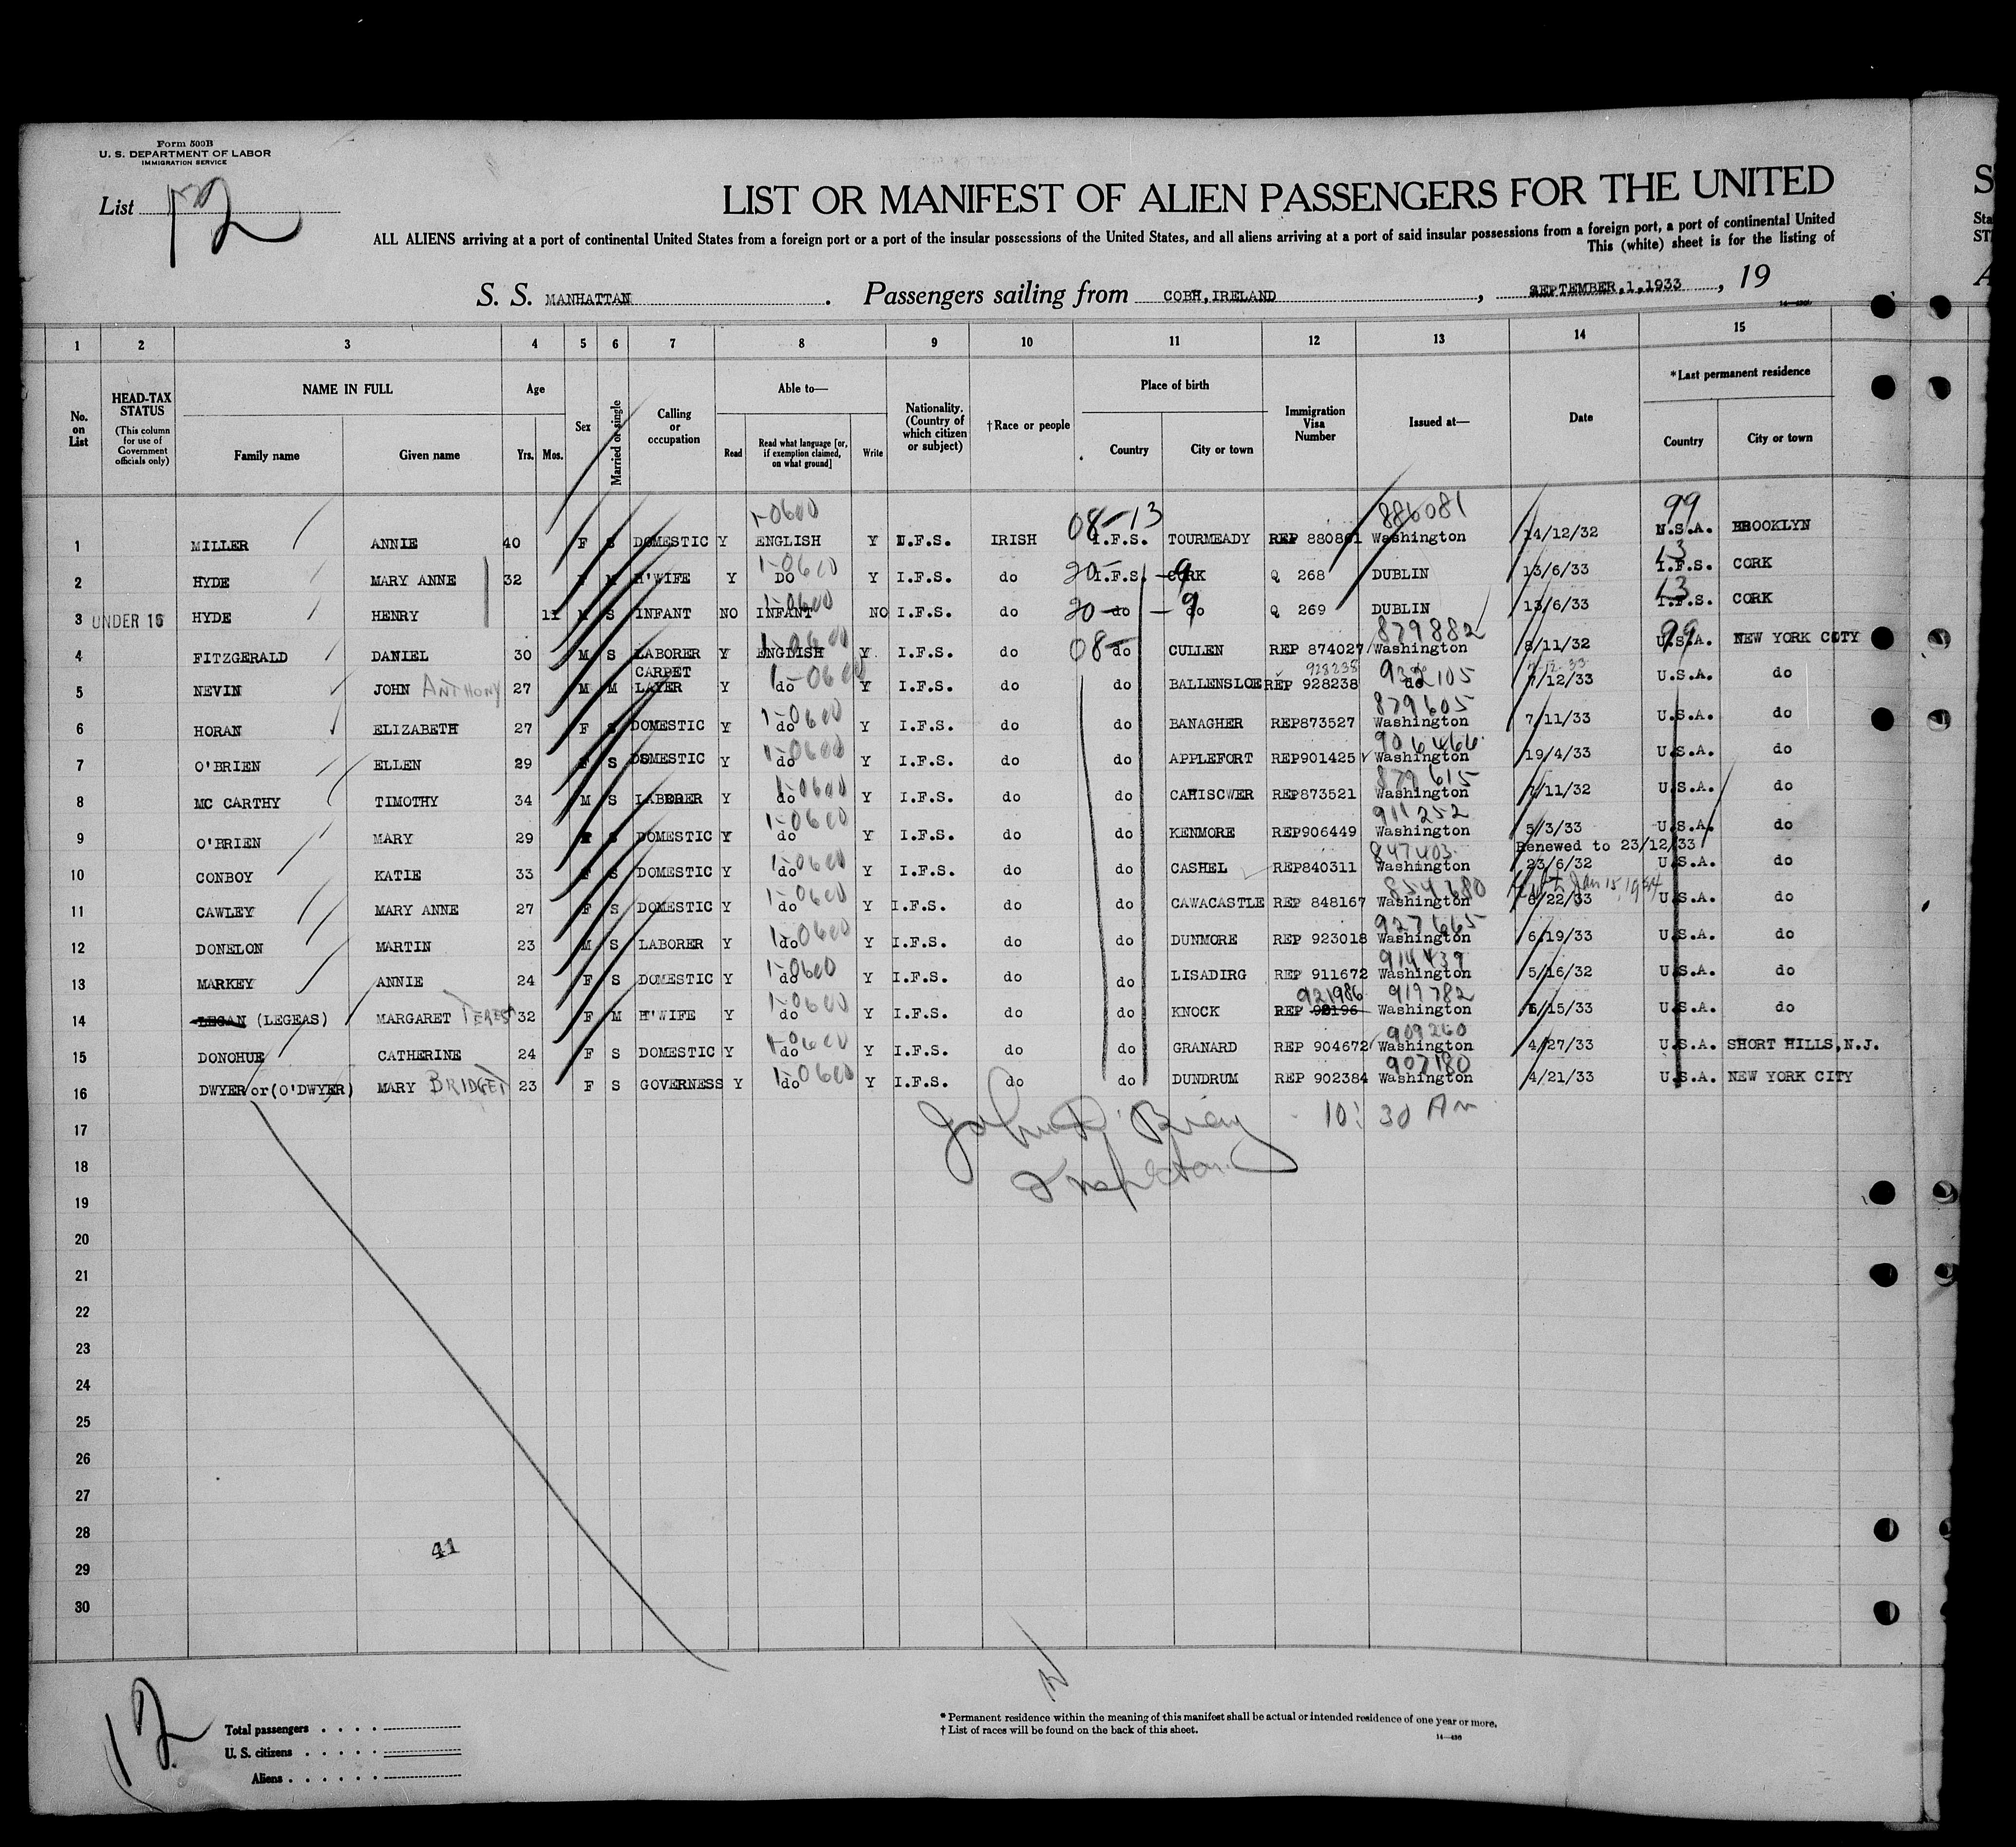 Form 500B
U. S. DEPARTMENT OF LABOR
IMMIGRATION SERVICE
List 12
LIST OR MANIFEST OF ALIEN PASSENGERS FOR THE UNITED
ALL ALIENS arriving at a port of continental United States from a foreign port or a port of the insular possessions of the United States, and all aliens arriving at a port of said insular possessions from a foreign port, a port of continental United
This (white) sheet is for the listing of
S. S. MANHATTAN . Passengers sailing from COBH, IRELAND , SEPTEMBER,1,1933 , 19
1 2 3 4 5 6 7 8 9 10 11 12 13 14 15
No. on List HEAD-TAX STATUS (This column for use of Government officials only) NAME IN FULL Family name Given name Age Yrs. Mos. Sex Married or single Calling or occupation Able to— Read Read what language [or, if exemption claimed, on what ground] Write Nationality. (Country of which citizen or subject) †Race or people Place of birth Country City or town Immigration Visa Number Issued at— Date *Last permanent residence Country City or town
1-0600 08-13 886081 99
1 MILLER ANNIE 40 F S DOMESTIC Y ENGLISH Y I.F.S. IRISH I.F.S. TOURMEADY REP 880861 Washington 14/12/32 U.S.A. BROOKLYN
1-0600 20 9 13
2 HYDE MARY ANNE 32 F M H'WIFE Y DO Y I.F.S. do I.F.S. CORK Q 268 DUBLIN 13/6/33 I.F.S. CORK
1-0600 20 9 13
3 UNDER 16 HYDE HENRY 11 M S INFANT NO INFANT NO I.F.S. do do do Q 269 DUBLIN 13/6/33 I.F.S. CORK
1-0600 08 879882 99
4 FITZGERALD DANIEL 30 M S LABORER Y ENGLISH Y I.F.S. do do CULLEN REP 874027 Washington 8/11/32 U.S.A. NEW YORK CITY
CARPET 1-0600 928238 932105 7-12-33
5 NEVIN JOHN ANTHONY 27 M M LAYER Y do Y I.F.S. do do BALLENSLOE REP 928238 do 7/12/33 U.S.A. do
1-0600 879605
6 HORAN ELIZABETH 27 F S DOMESTIC Y do Y I.F.S. do do BANAGHER REP873527 Washington 7/11/33 U.S.A. do
1-0600 906466
7 O'BRIEN ELLEN 29 F S DOMESTIC Y do Y I.F.S. do do APPLEFORT REP901425 Washington 19/4/33 U.S.A. do
1-0600 879615
8 MC CARTHY TIMOTHY 34 M S LABORER Y do Y I.F.S. do do CAHISCWER REP873521 Washington 7/11/32 U.S.A. do
1-0600 911252
9 O'BRIEN MARY 29 F S DOMESTIC Y do Y I.F.S. do do KENMORE REP906449 Washington 5/3/33 U.S.A. do
Renewed to 23/12/33
1-0600 847403
10 CONBOY KATIE 33 F S DOMESTIC Y do Y I.F.S. do do CASHEL REP840311 Washington 23/6/32 U.S.A. do
1-0600 854680 Jan 15, 1934
11 CAWLEY MARY ANNE 27 F S DOMESTIC Y do Y I.F.S. do do CAWACASTLE REP 848167 Washington 6/22/33 U.S.A. do
1-0600 927665
12 DONELON MARTIN 23 M S LABORER Y do Y I.F.S. do do DUNMORE REP 923018 Washington 6/19/33 U.S.A. do
1-0600 914439
13 MARKEY ANNIE 24 F S DOMESTIC Y do Y I.F.S. do do LISADIRG REP 911672 Washington 5/16/32 U.S.A. do
1-0600 921986 919782
14 LEGAN (LEGEAS) MARGARET TERESA 32 F M H'WIFE Y do Y I.F.S. do do KNOCK REP 92196 Washington 6/15/33 U.S.A. do
1-0600 909260
15 DONOHUE CATHERINE 24 F S DOMESTIC Y do Y I.F.S. do do GRANARD REP 904672 Washington 4/27/33 U.S.A. SHORT HILLS,N.J.
1-0600 907180
16 DWYER or (O'DWYER) MARY BRIDGET 23 F S GOVERNESS Y do Y I.F.S. do do DUNDRUM REP 902384 Washington 4/21/33 U.S.A. NEW YORK CITY
17 John O'Brien 10:30 AM
18 Inspector
19
20
21
22
23
24
25
26
27
28
29 41
30
12
Total passengers
U. S. citizens
Aliens
* Permanent residence within the meaning of this manifest shall be actual or intended residence of one year or more.
† List of races will be found on the back of this sheet.
14—430